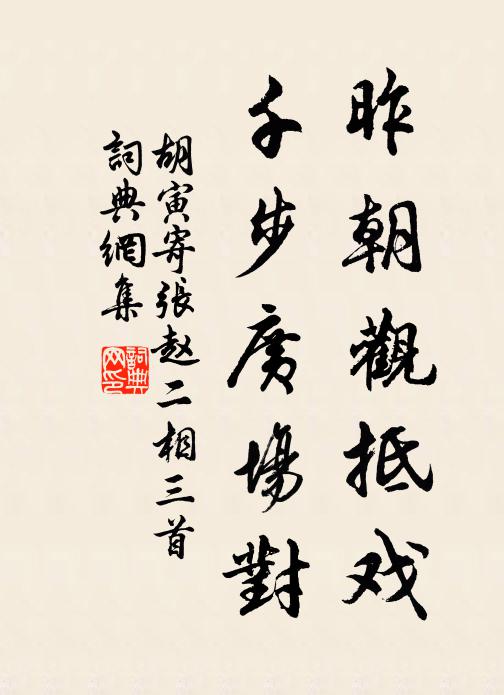 昨朝觀抵戏
千步廣場對
胡寅寄張赵二相三首
詞典網集
詞典网印